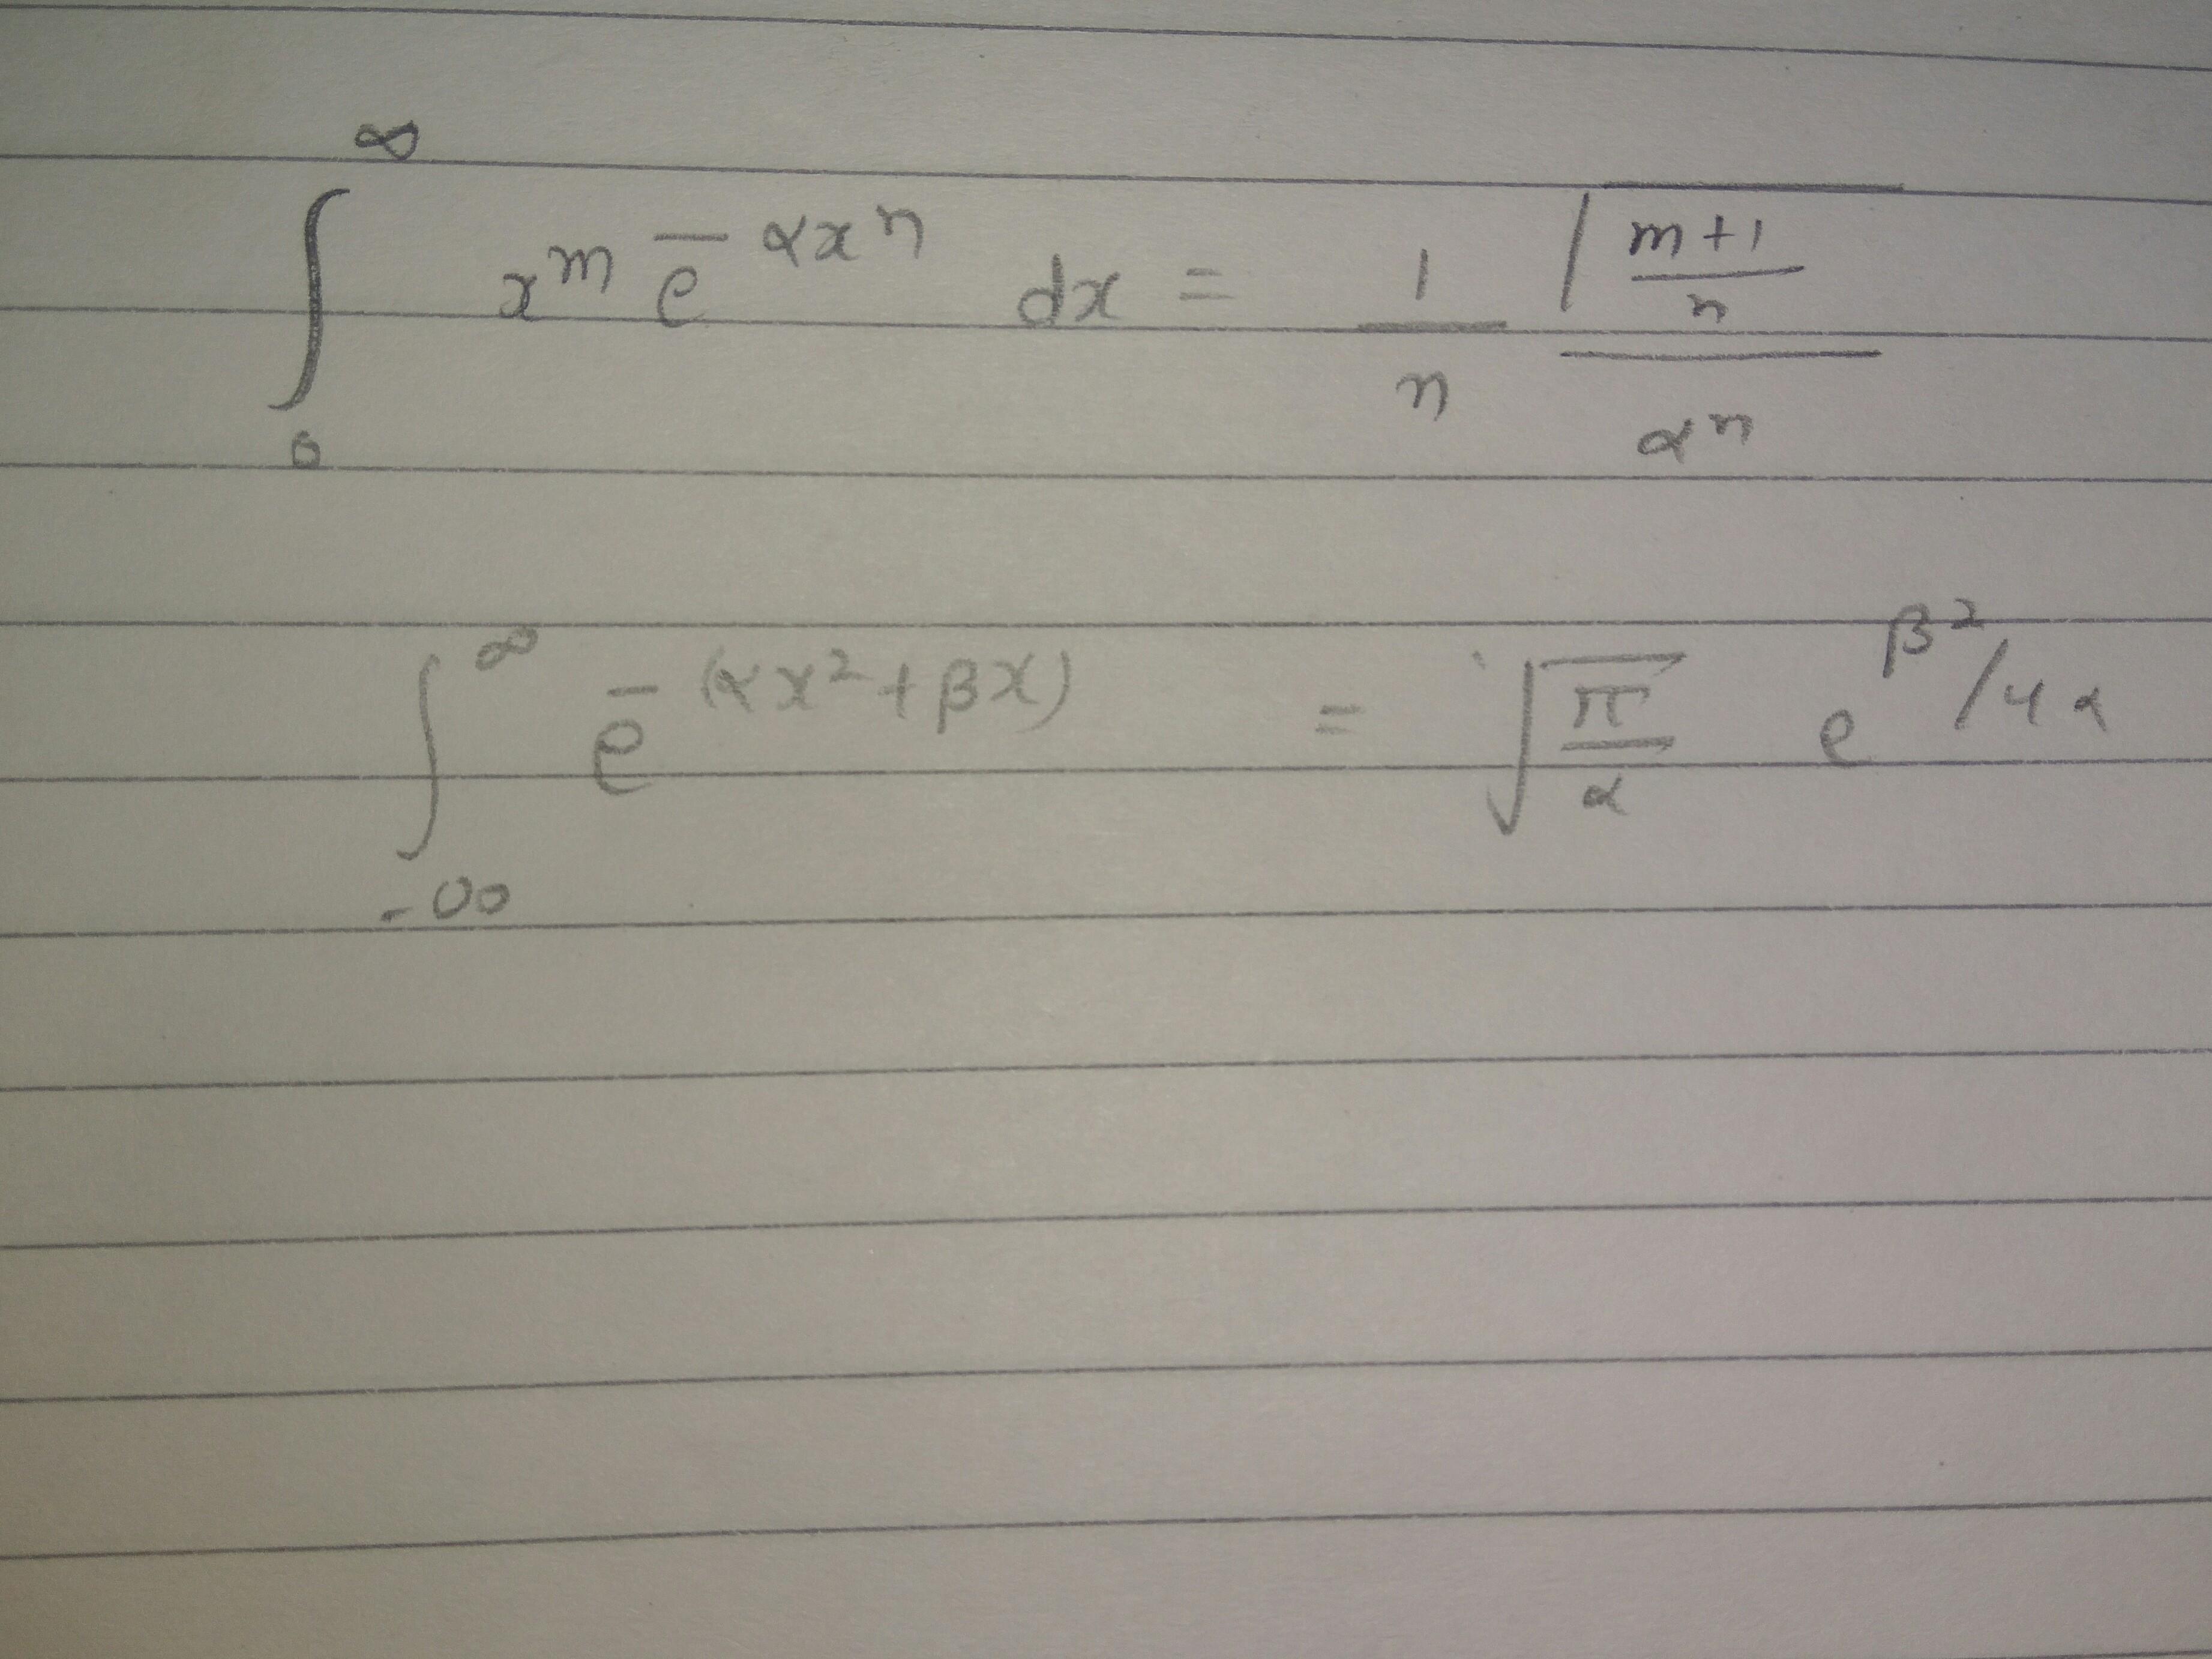 ∫₀^∞ x^m e^{-αx^n} dx = \frac{1}{n} \frac{Γ\frac{m+1}{n}}{α^n}
∫_{-∞}^{∞} e^{-(αx²+βx)} = \sqrt{\frac{π}{α}} e^{β²/4α}